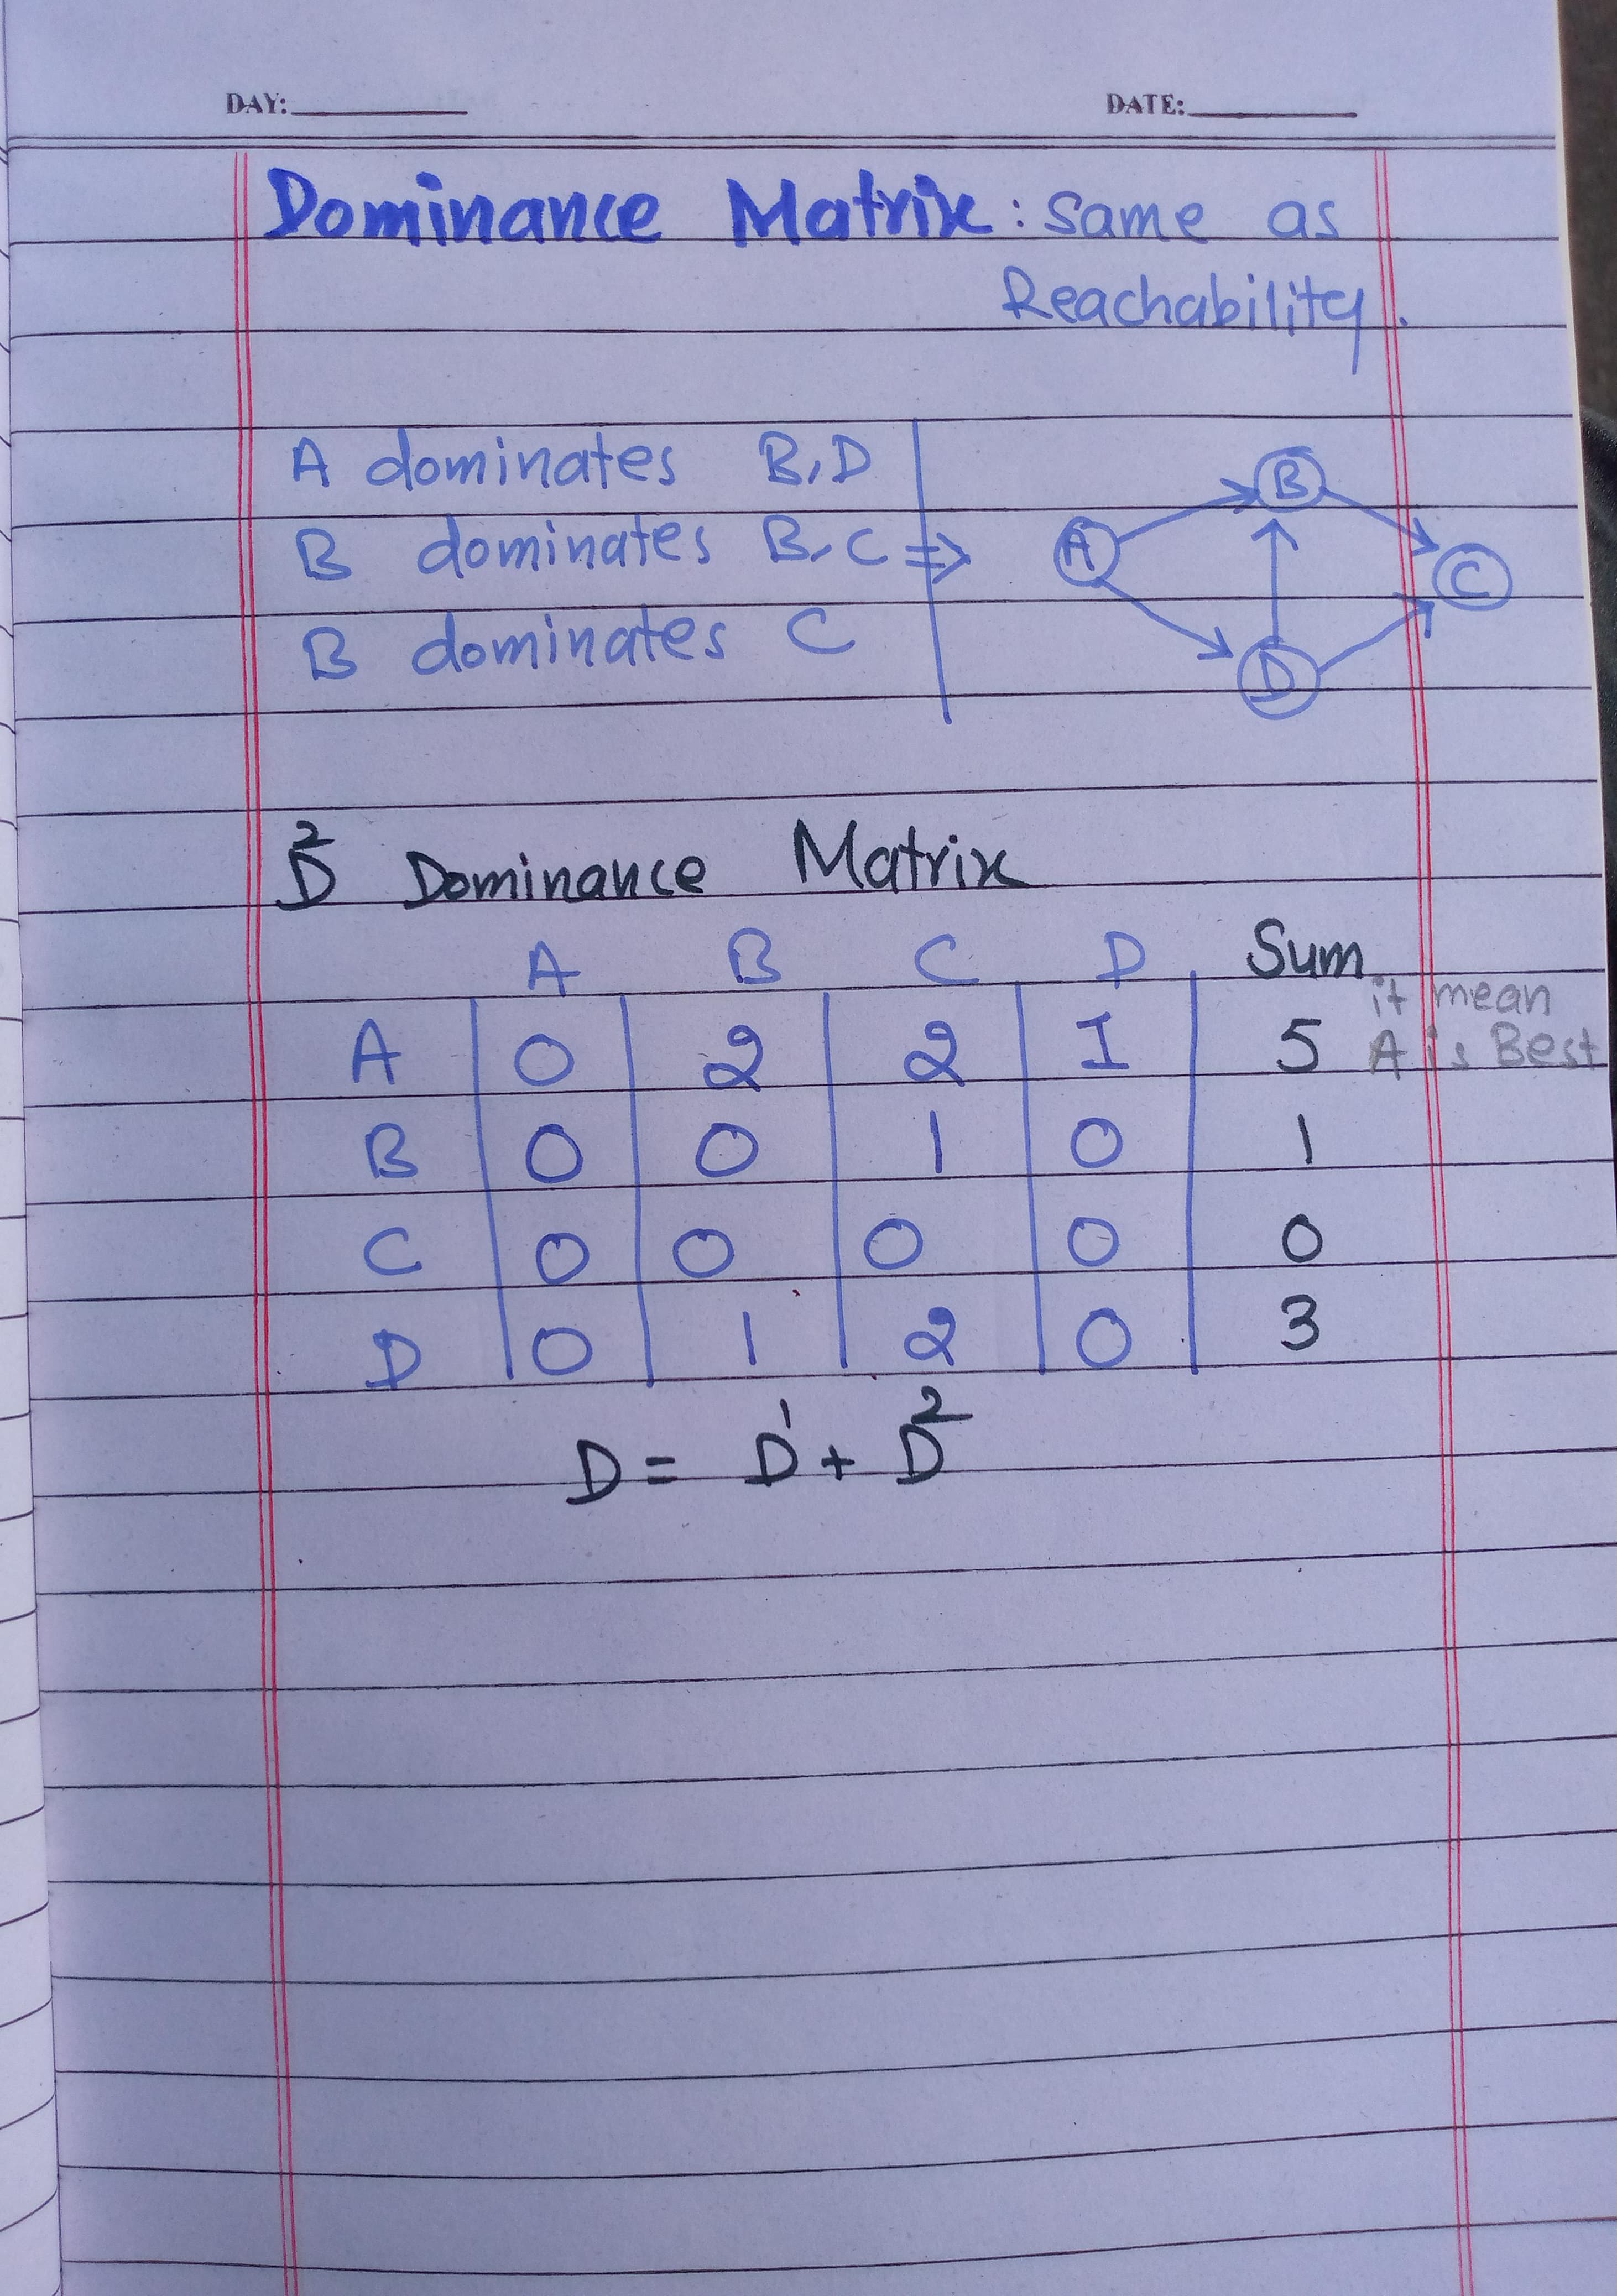 DAY: DATE:
Dominance Matrix: Same as
Reachability.
A dominates B, D
B dominates B, C =>
B dominates C
A B C D
D² Dominance Matrix
A B C D Sum
it mean
A 0 2 2 I 5 A is Best
B 0 0 1 0 1
C 0 0 0 0 0
D 0 1 2 0 3
D = D¹ + D²